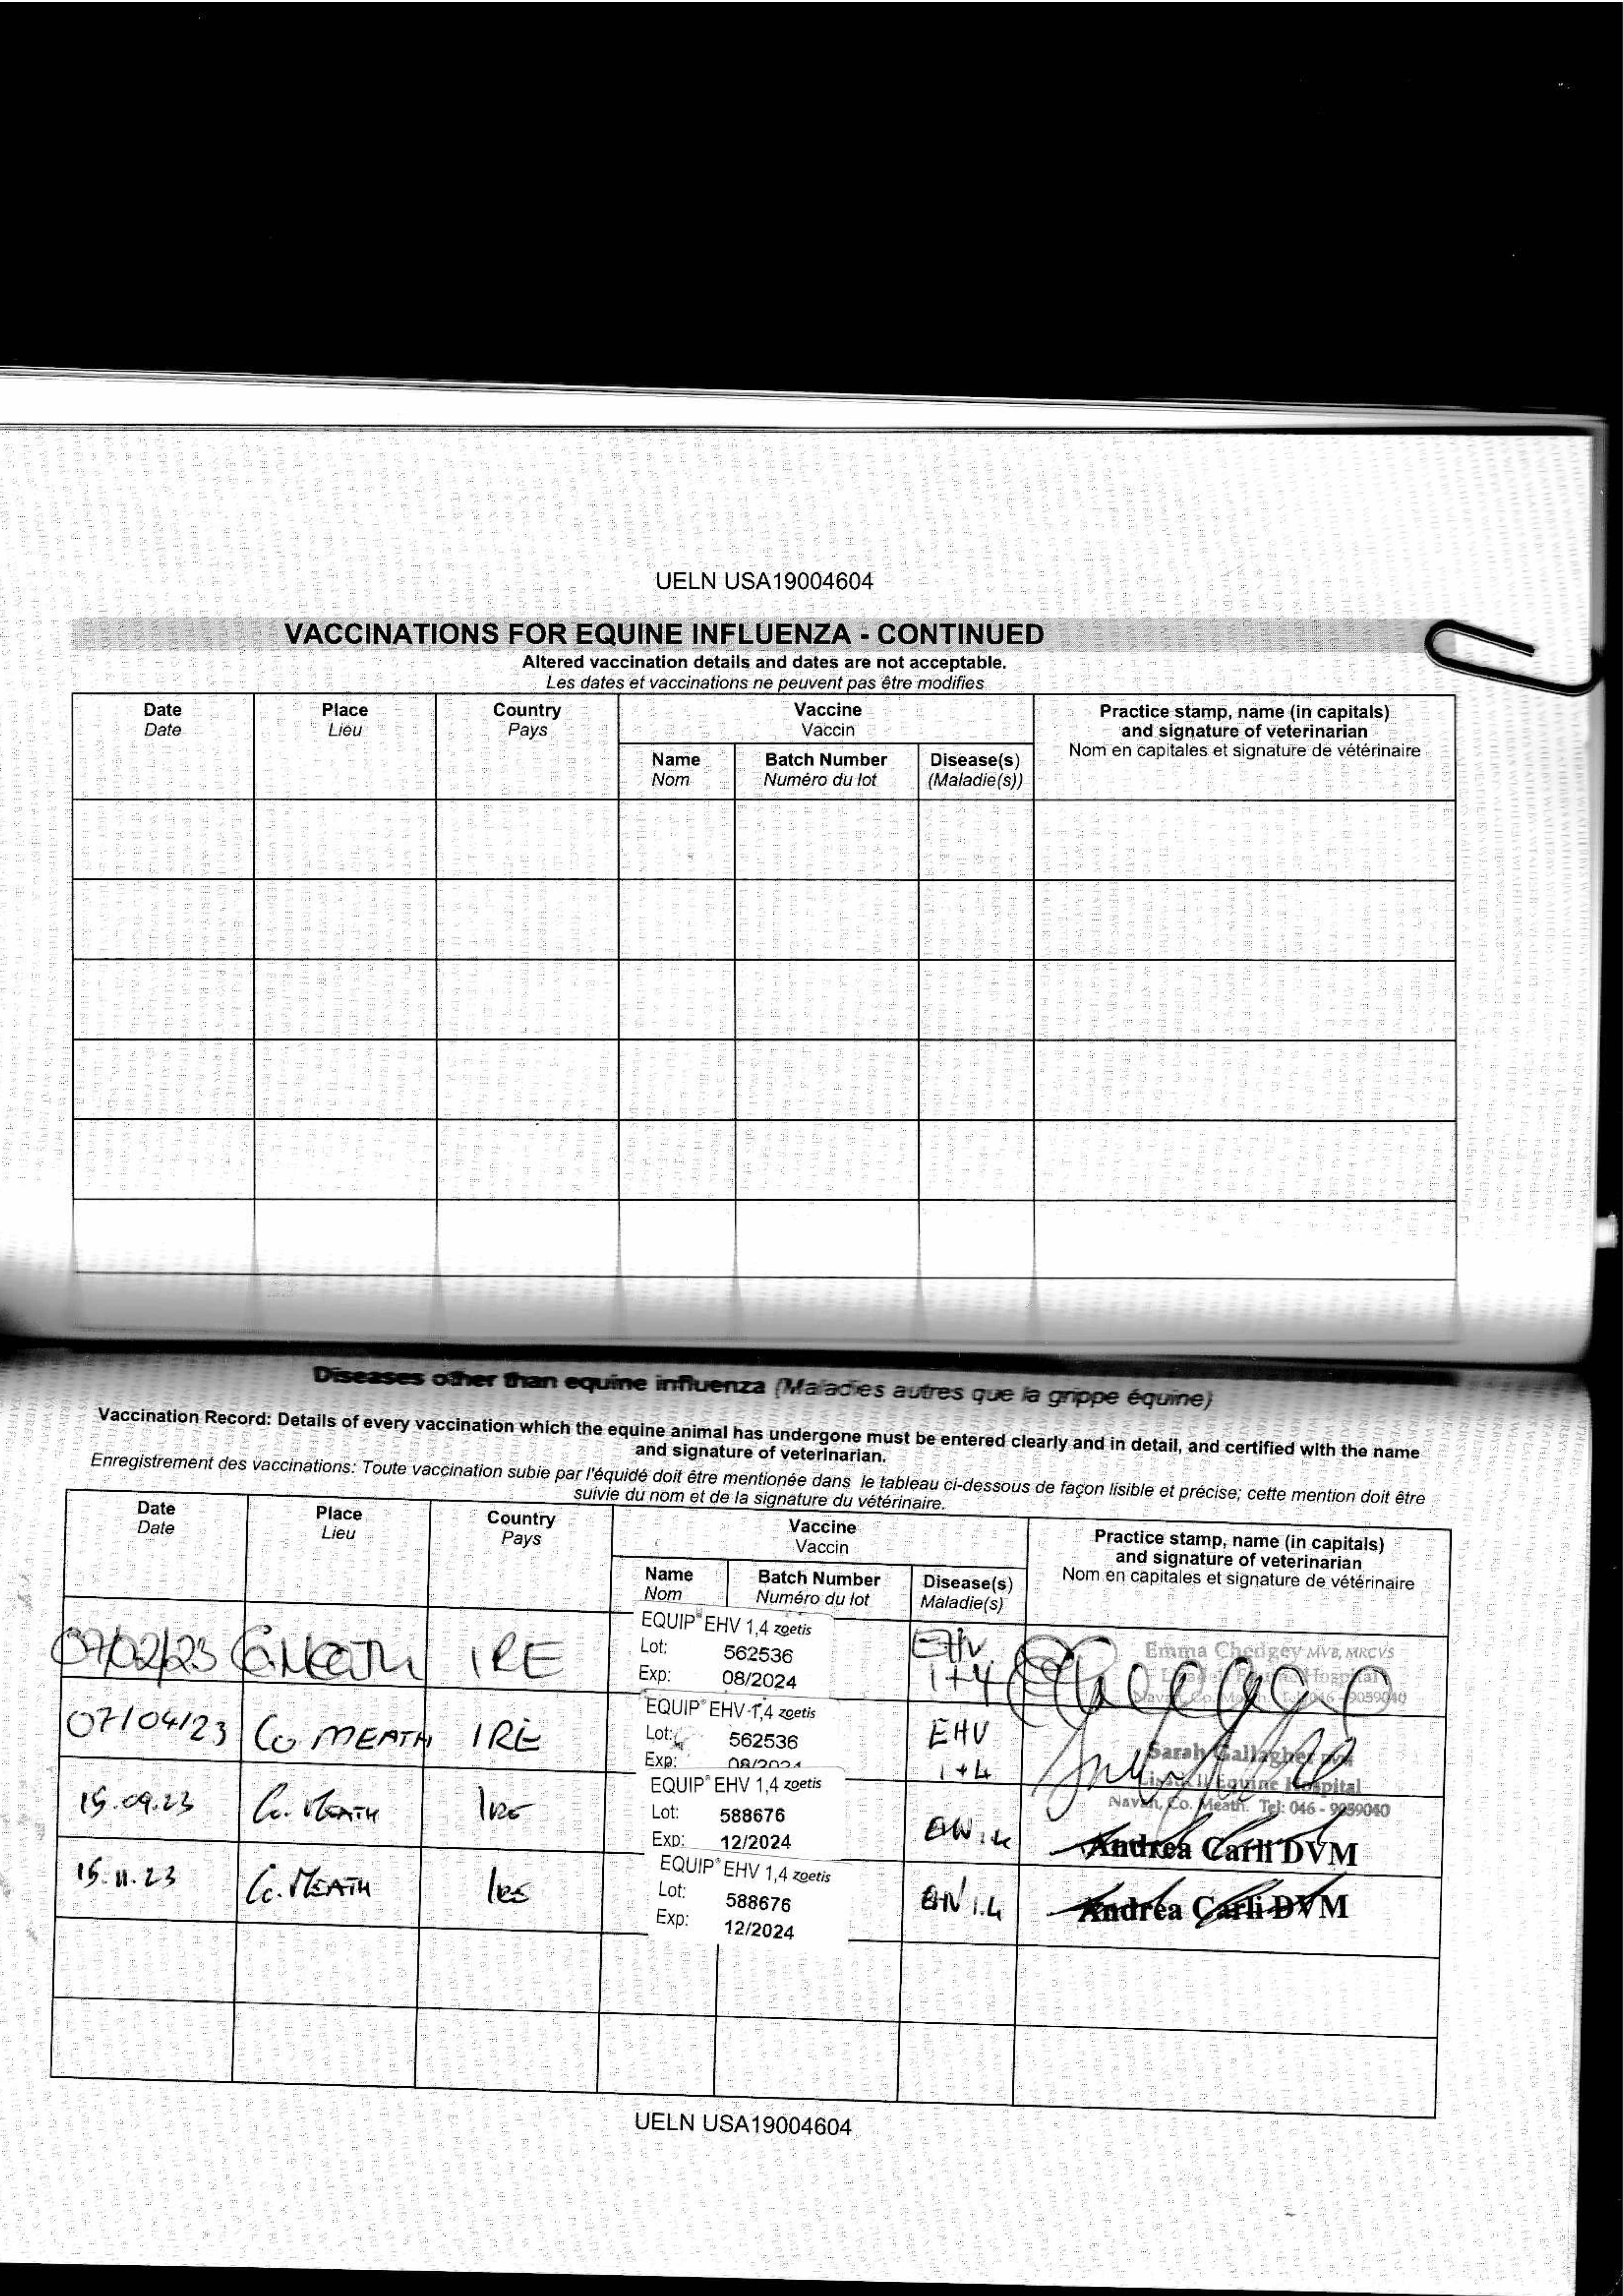 UELN USA19004604
VACCINATIONS FOR EQUINE INFLUENZA - CONTINUED
Altered vaccination details and dates are not acceptable.
Les dates et vaccinations ne peuvent pas être modifies
Date Place Country Vaccine Practice stamp, name (in capitals)
Date Lieu Pays Vaccin and signature of veterinarian
Nom en capitales et signature de vétérinaire
Name Batch Number Disease(s)
Nom Numéro du lot (Maladie(s))
Diseases other than equine influenza (Maladies autres que la grippe équine)
Vaccination Record: Details of every vaccination which the equine animal has undergone must be entered clearly and in detail, and certified with the name
and signature of veterinarian.
Enregistrement des vaccinations: Toute vaccination subie par l'équidé doit être mentionée dans le tableau ci-dessous de façon lisible et précise; cette mention doit être
suivie du nom et de la signature du vétérinaire.
Date Place Country Vaccine Practice stamp, name (in capitals)
Date Lieu Pays Vaccin and signature of veterinarian
Nom en capitales et signature de vétérinaire
Name Batch Number Disease(s)
Nom Numéro du lot Maladie(s)
EQUIP® EHV 1,4 zoetis
07/02/23 Co. Meath IRE Lot: 562536 EHV Emma Chedgey MVB, MRCVS
Exp: 08/2024 1+4 Hospital
Navan, Co. Meath. Tel: 046 - 9059040
EQUIP® EHV 1,4 zoetis
07/04/23 Co MEATH IRE Lot: 562536 EHV Sarah Gallagher DVM
Exp: 08/2024 1+4 Equine Hospital
Navan, Co. Meath. Tel: 046 - 9059040
EQUIP® EHV 1,4 zoetis
15.09.23 Co. MEATH IRE Lot: 588676
Exp: 12/2024 Andrea Carli DVM
EQUIP® EHV 1,4 zoetis
15.11.23 Co. MEATH IRE Lot: 588676 Andrea Carli DVM
Exp: 12/2024
UELN USA19004604